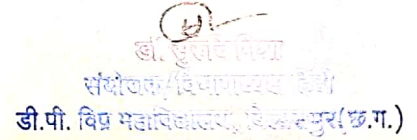 डॉ.
संयोजक/विभागाध्यक्ष हिन्दी
डी.पी. विप्र महाविद्यालय, बिलासपुर(छ.ग.)